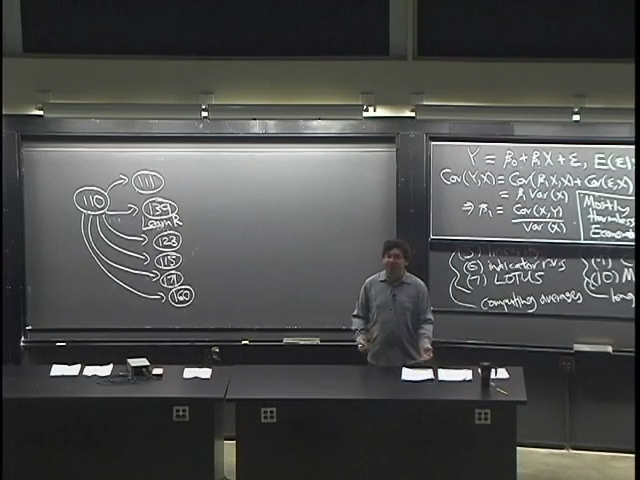 110
111
139
Learn R
123
115
171
160
Y = β₀ + β₁X + ε, E(ε|
Cov(Y,X) = Cov(β₁X,X) + Cov(ε,X)
= β₁ Var(X)
⇒ β₁ = Cov(X,Y) / Var(X) .
Mostly
Harmless
Econome
(6) indicator r.v.s
(7) LOTUS
computing averages
(10) M